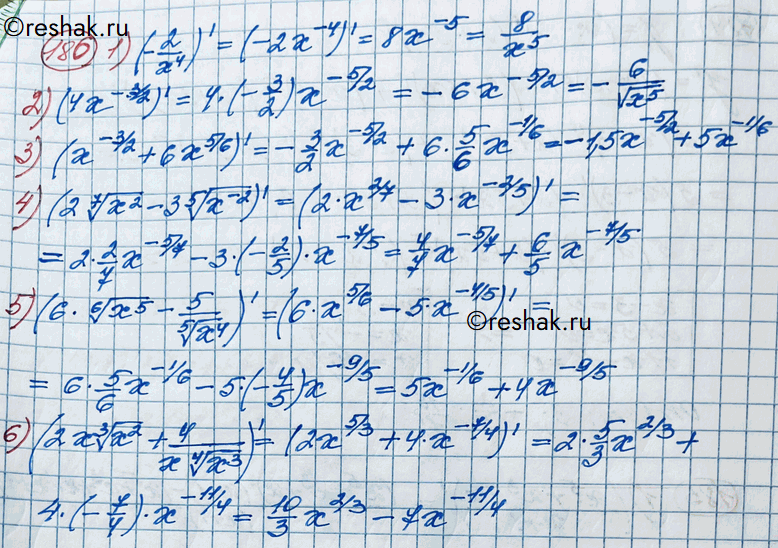 186 1) (-2/x⁴)' = (-2x⁻⁴)' = 8x⁻⁵ = 8/x⁵
2) (4x^(-3/2))' = 4·(-3/2)x^(-5/2) = -6x^(-5/2) = -6/√(x⁵)
3) (x^(-3/2) + 6x^(5/6))' = -3/2 x^(-5/2) + 6·5/6 x^(-1/6) = -1,5x^(-5/2) + 5x^(-1/6)
4) (2 ⁷√(x²) - 3 ⁵√(x⁻²))' = (2·x^(2/7) - 3·x^(-2/5))' =
= 2·2/7 x^(-5/7) - 3·(-2/5)·x^(-7/5) = 4/7 x^(-5/7) + 6/5 x^(-7/5)
©reshak.ru
5) (6·⁶√(x⁵) - 5/⁵√(x⁴))' = (6·x^(5/6) - 5·x^(-4/5))' =
©reshak.ru
= 6·5/6 x^(-1/6) - 5·(-4/5)x^(-9/5) = 5x^(-1/6) + 4x^(-9/5)
6) (2x ³√(x²) + 4/(x ⁴√(x³)))' = (2x^(5/3) + 4·x^(-7/4))' = 2·5/3 x^(2/3) +
4·(-7/4)·x^(-11/4) = 10/3 x^(2/3) - 7x^(-11/4)